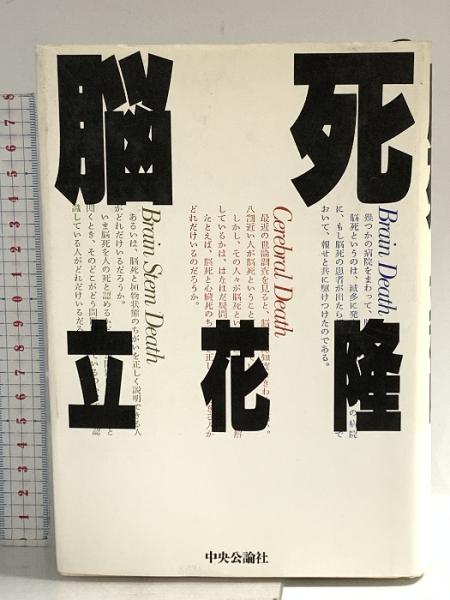 脳 死
Brain Death
幾つかの病院をまわって、
脳死というのは、滅多に発 の病院
に、もし脳死の患者が出たら で
おいて、報せと共に駆けつけたのである。
Cerebral Death
最近の世論調査を見ると、脳
八割近い人が脳死ということ
しかし、その人々が脳死とい 解
しているかは、はなはだ疑問
たとえば、脳死と心臓死のち 正し きる人が
どれだけいるのだろうか。
Brain Stem Death
あるいは、脳死と植物状態のちがいを正しく説明できる人
がどれだけいるだろうか。
いま脳死を人の死と認める と
聞くとき、そのどこがどう問題 認
識している人がどれだけいるだろ
立 花 隆
中央公論社